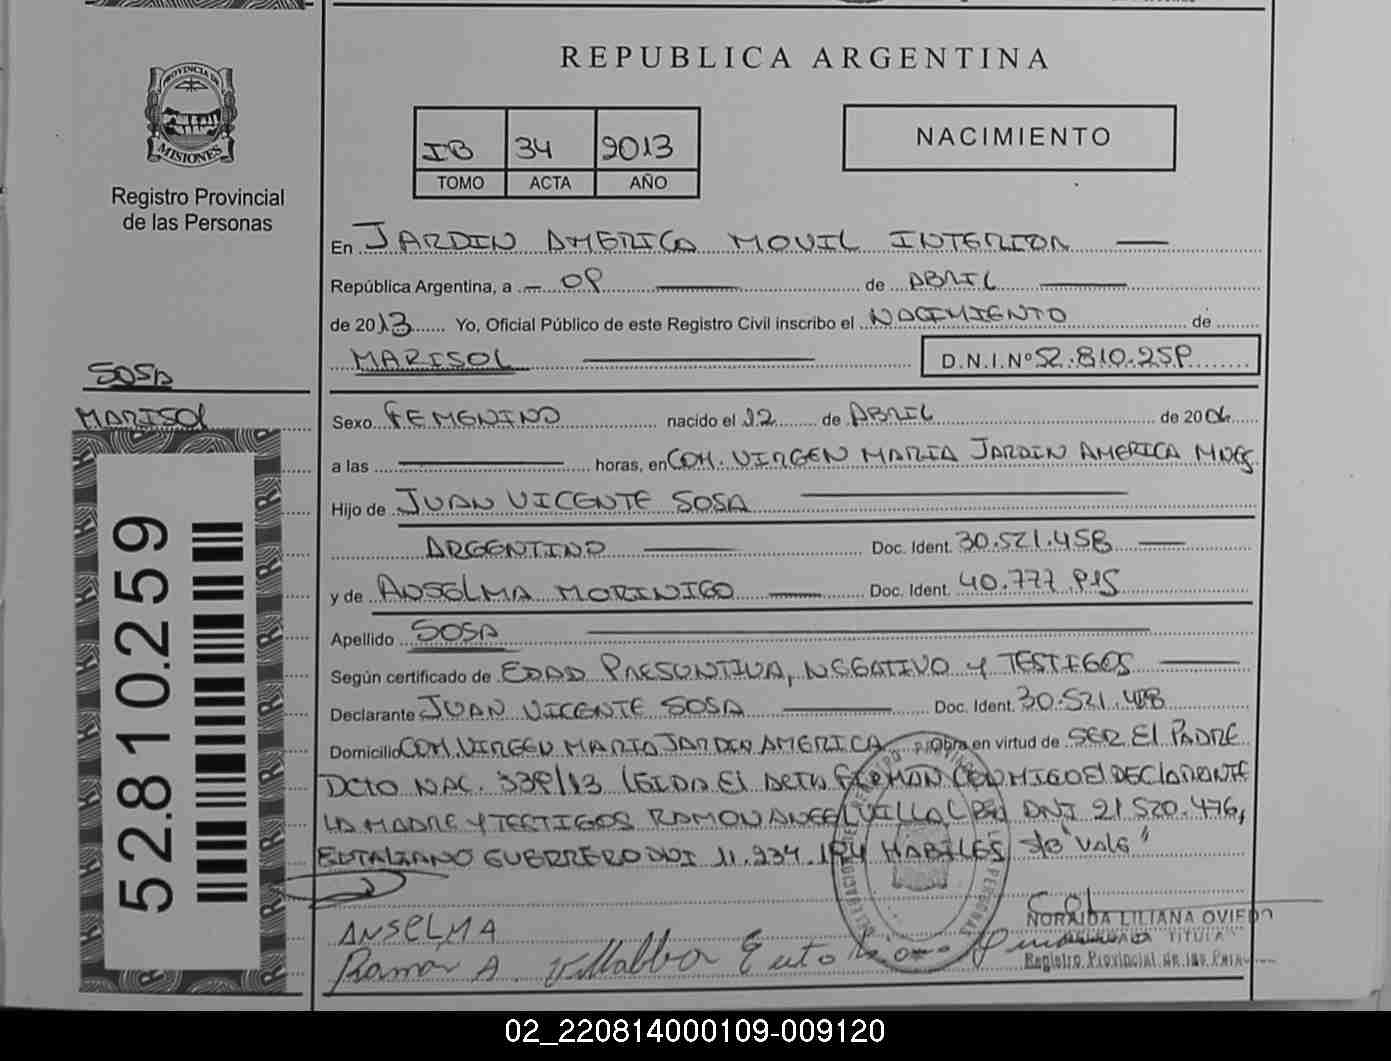 REPUBLICA ARGENTINA
PROVINCIA DE
MISIONES
Registro Provincial
de las Personas
IB 34 2013
TOMO ACTA AÑO
NACIMIENTO
En JARDIN AMERICA MOVIL INTERIOR
República Argentina, a 09 de ABRIL
de 2013 Yo, Oficial Público de este Registro Civil inscribo el NACIMIENTO de
MARISOL D.N.I.Nº 52.810.259
SOSA
MARISOL
52.810.259
Sexo FEMENINO nacido el 12 de ABRIL de 2006
a las horas, en COM. VIRGEN MARIA JARDIN AMERICA MNES.
Hijo de JUAN VICENTE SOSA
ARGENTINO Doc. Ident. 30.521.458
y de ANSELMA MORINIGO Doc. Ident. 40.777.915
Apellido SOSA
Según certificado de EDAD PRESUNTIVA, NEGATIVO Y TESTIGOS
Declarante JUAN VICENTE SOSA Doc. Ident. 30.521.458
Domicilio COM. VIRGEN MARIA JARDIN AMERICA Obra en virtud de SER EL PADRE
DCTO NAC. 339/13 LEIDA EL ACTA FIRMAN CONMIGO El DEClARANTE
LA MADRE Y TESTIGOS RAMON ANGEL VILLALBA DNI 21.520.476,
EUTALIANO GUERRERO DNI 11.934.194 HABILES S/B "VALE"
ANSELMA
Ramon A. Villalba
NORAIDA LILIANA OVIEDO
DELEGADA TITULAR
Registro Provincial de las Personas
02_220814000109-009120